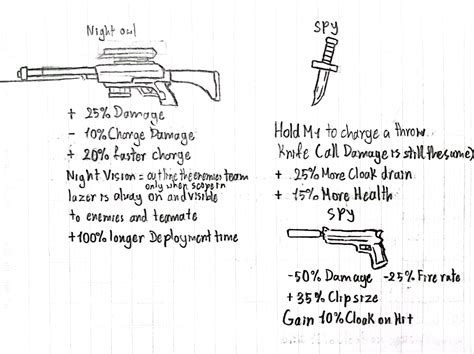 Night owl
+ 25% Damage
- 10% Charge Damage
+ 20% faster charge
Night Vision = outline the enemies team
only when scope in
lazer is alway on and visible
to enemies and temate
+100% longer Deployment time
SPY
Hold M1 to charge a throw
Knife Call Damage is still the same)
+ 25% More Cloak drain
+ 15% More Health
SPY
-50% Damage -25% Fire rate
+ 35% Clipsize
Gain 10% Cloak on Hit